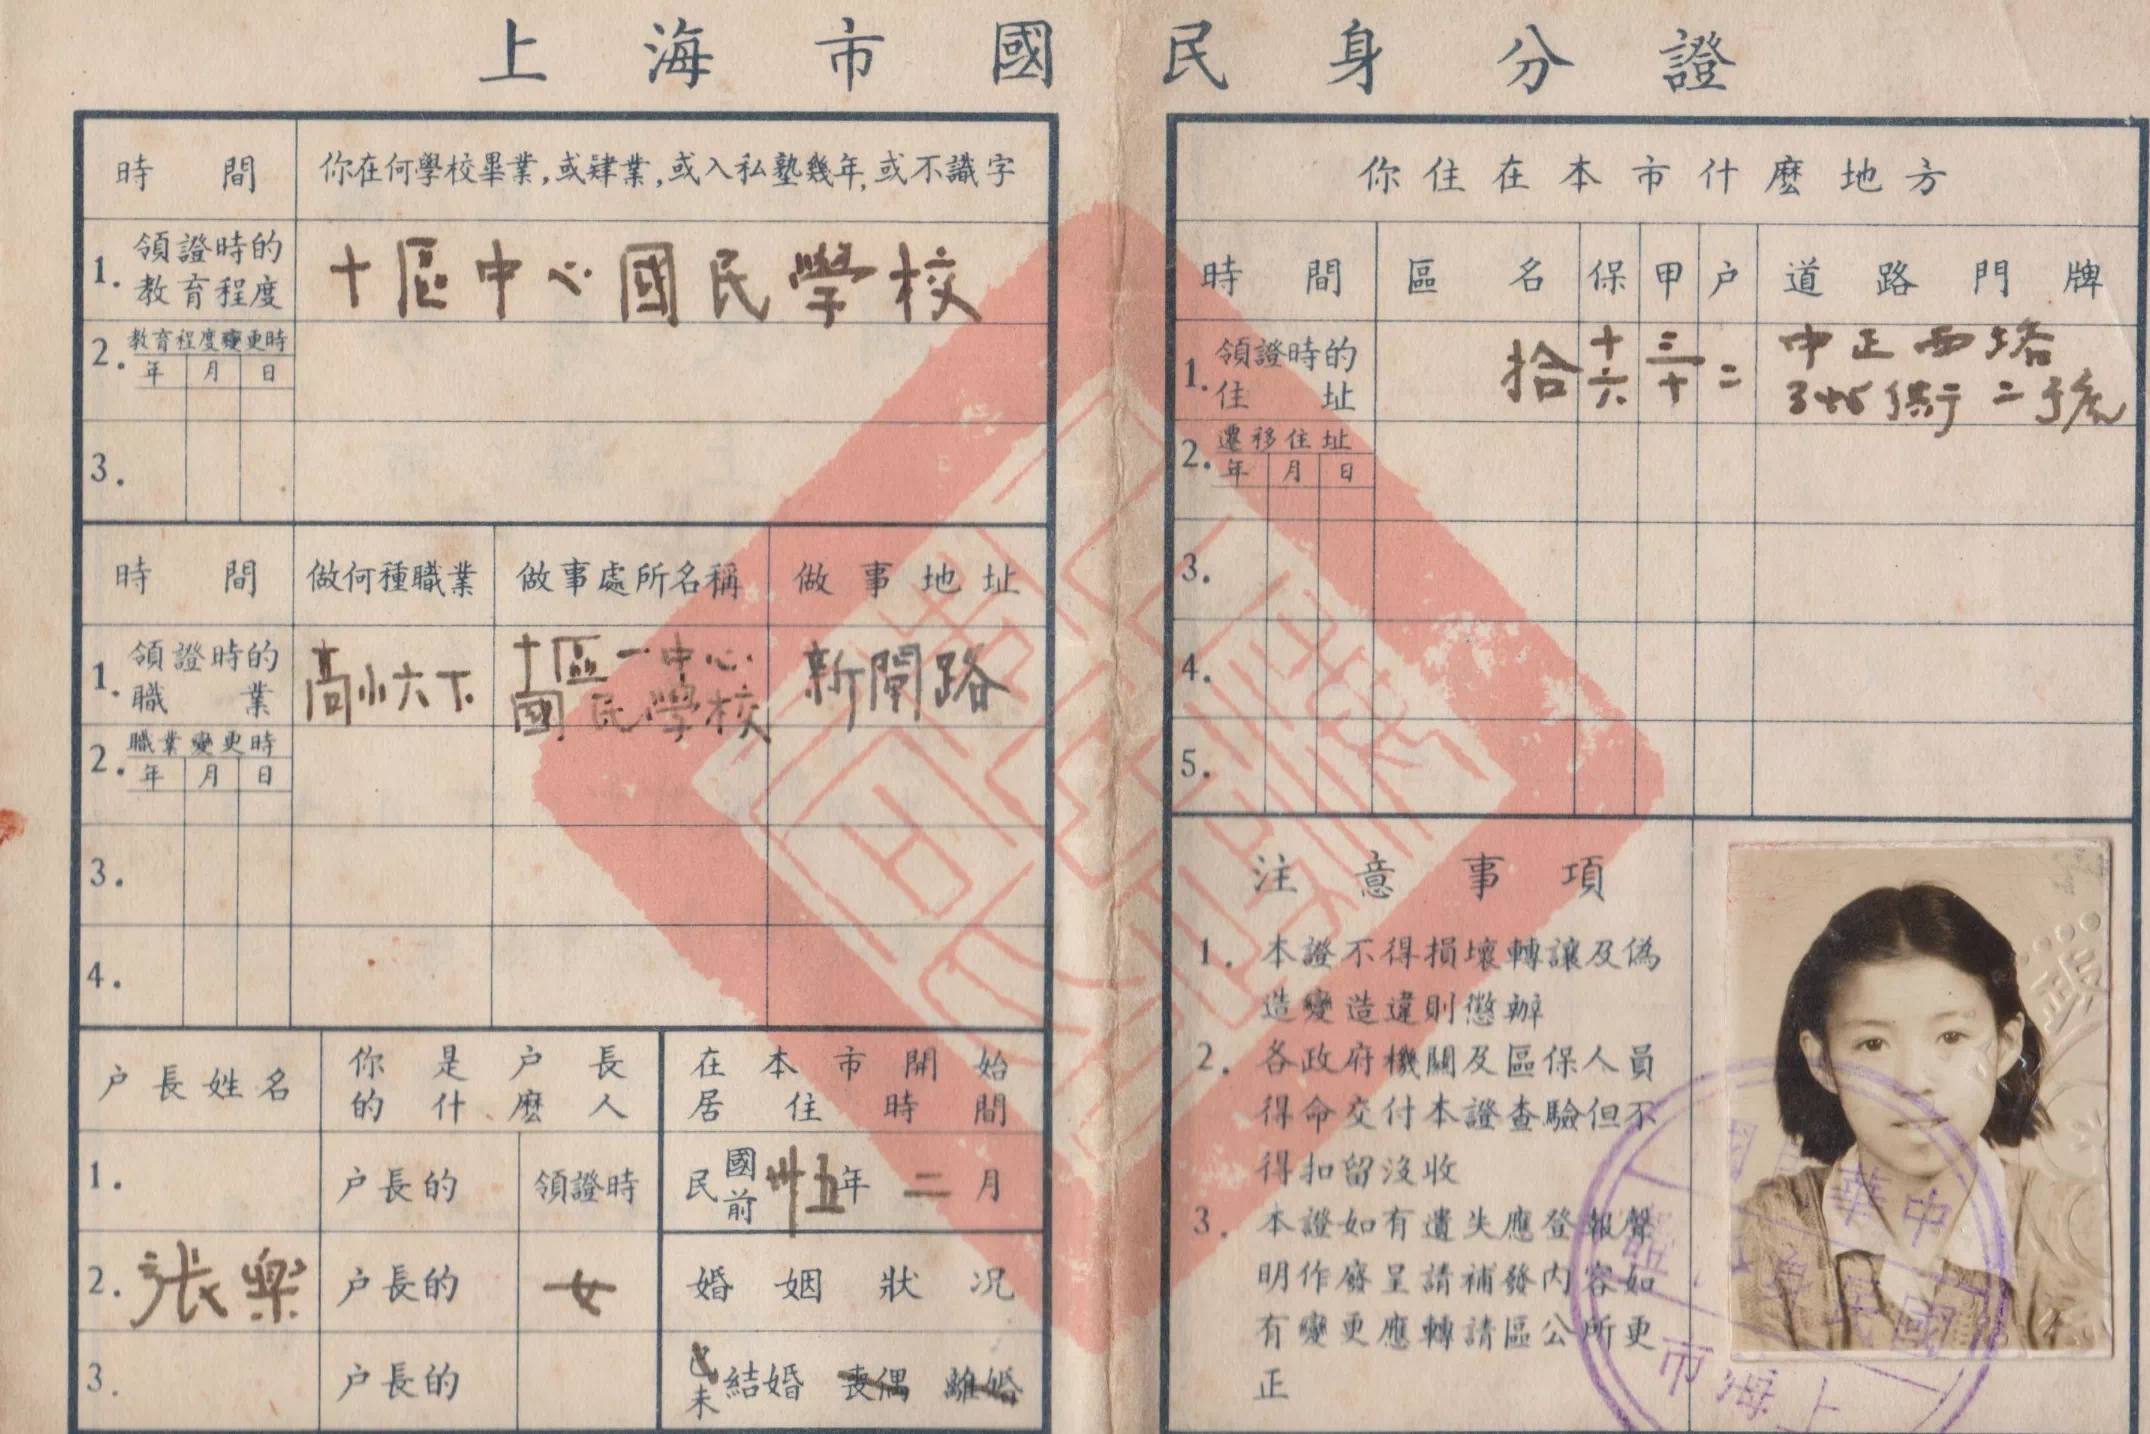 上海市國民身分證
時間 你在何學校畢業，或肄業，或入私塾幾年，或不識字
1. 領證時的教育程度 十區中心國民學校
2. 教育程度變更時
年 月 日
3.
時間 做何種職業 做事處所名稱 做事地址
1. 領證時的職業 高小六下 十區一中心國民學校 新閘路
2. 職業變更時
年 月 日
3.
4.
户長姓名 你是户長的什麽人 在本市開始居住時間
1. 户長的 領證時 民國前卅五年二月
2. 張樂 户長的 女 婚姻狀况
3. 户長的 已未結婚 喪偶 離婚
你住在本市什麽地方
時間 區名 保 甲 户 道路門牌
1. 領證時的住址 拾 十六 三十 二 中正西路
二號
2. 遷移住址
年 月 日
3.
4.
5.
注意事項
1. 本證不得損壞轉讓及偽
造變造違則懲辦
2. 各政府機關及區保人員
得命交付本證查驗但不
得扣留沒收
3. 本證如有遺失應登報聲
明作廢呈請補發內容如
有變更應轉請區公所更
正
中華民國
國民身分證
上海市